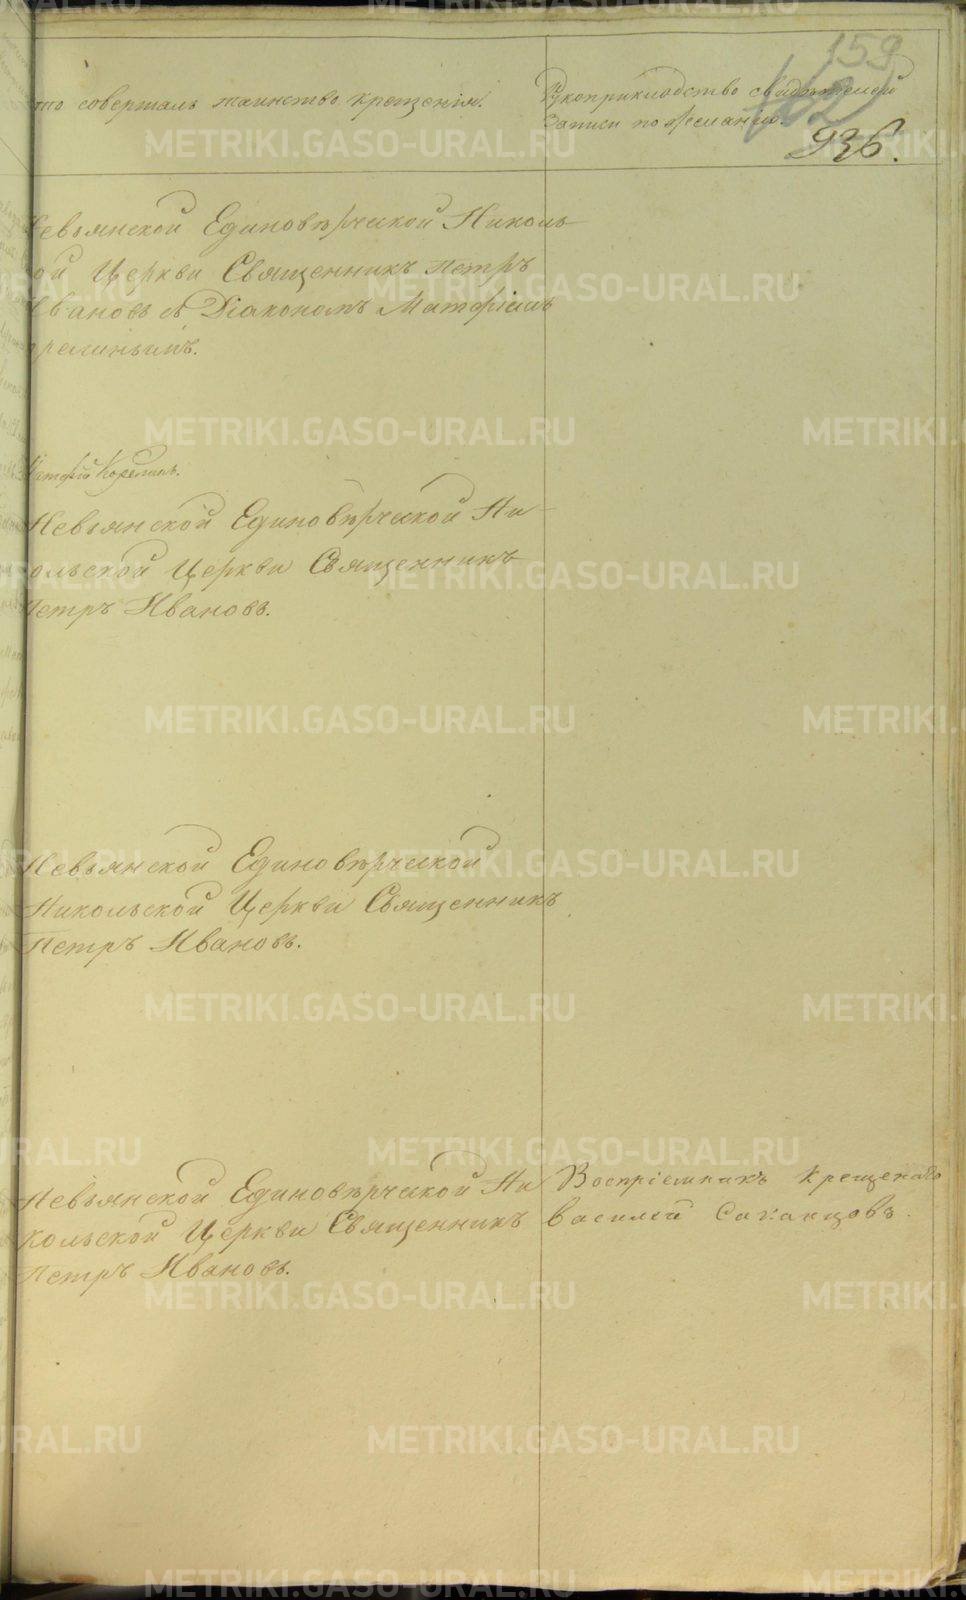 159
кто совершалъ таинство крещенія.
Рукоприкладство свидѣтелей
записи по желанію.
936.
Невьянской Единовѣрческой Николь
ской Церкви Священникъ Петръ
Ивановъ съ Діакономъ Матфіемъ
Карелинымъ.
Матфій Карелинъ.
Невьянской Единовѣрческой Ни
кольской Церкви Священникъ
Петръ Ивановъ.
Невьянской Единовѣрческой
Никольской Церкви Священникъ
Петръ Ивановъ.
Невьянской Единовѣрческой Ни
кольской Церкви Священникъ
Петръ Ивановъ.
Воспріемникъ Крещенаго
Василей Саканцовъ.
METRIKI.GASO-URAL.RU